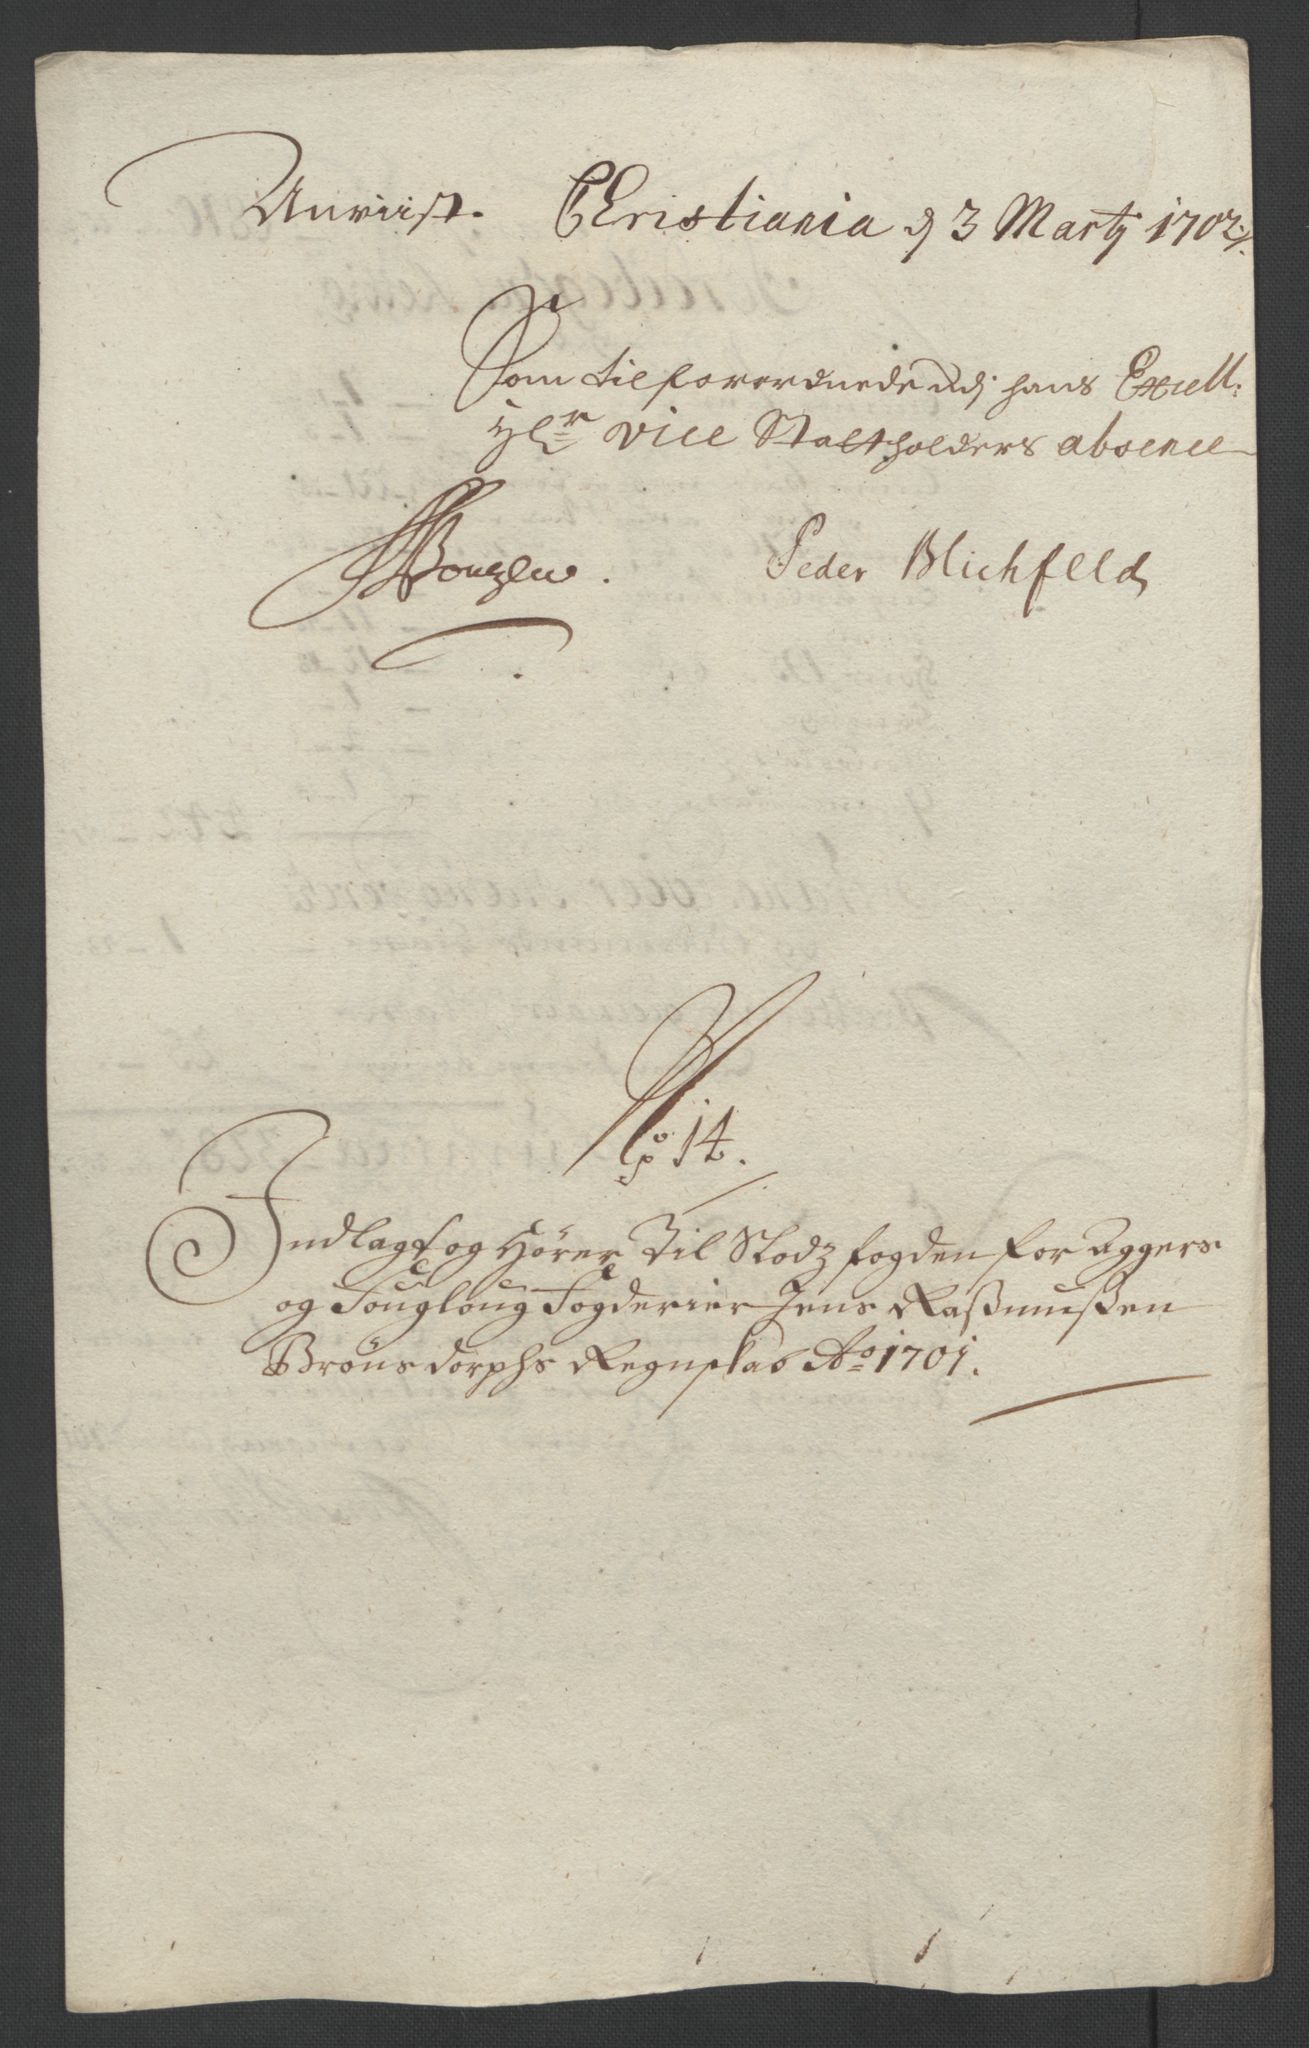 Anviist. Christiania d 3 Martj 1702.
Som tilforordnede udj hans Excell:
Hr vice Stattholders absence
Peder Blichfeld
No 14.
Indlagt og Hører Til Slodz fogden for Aggers
og Fougloug Fogderier Jens Raßmußen
Brønsdorphs Regnskab Ao 1701.